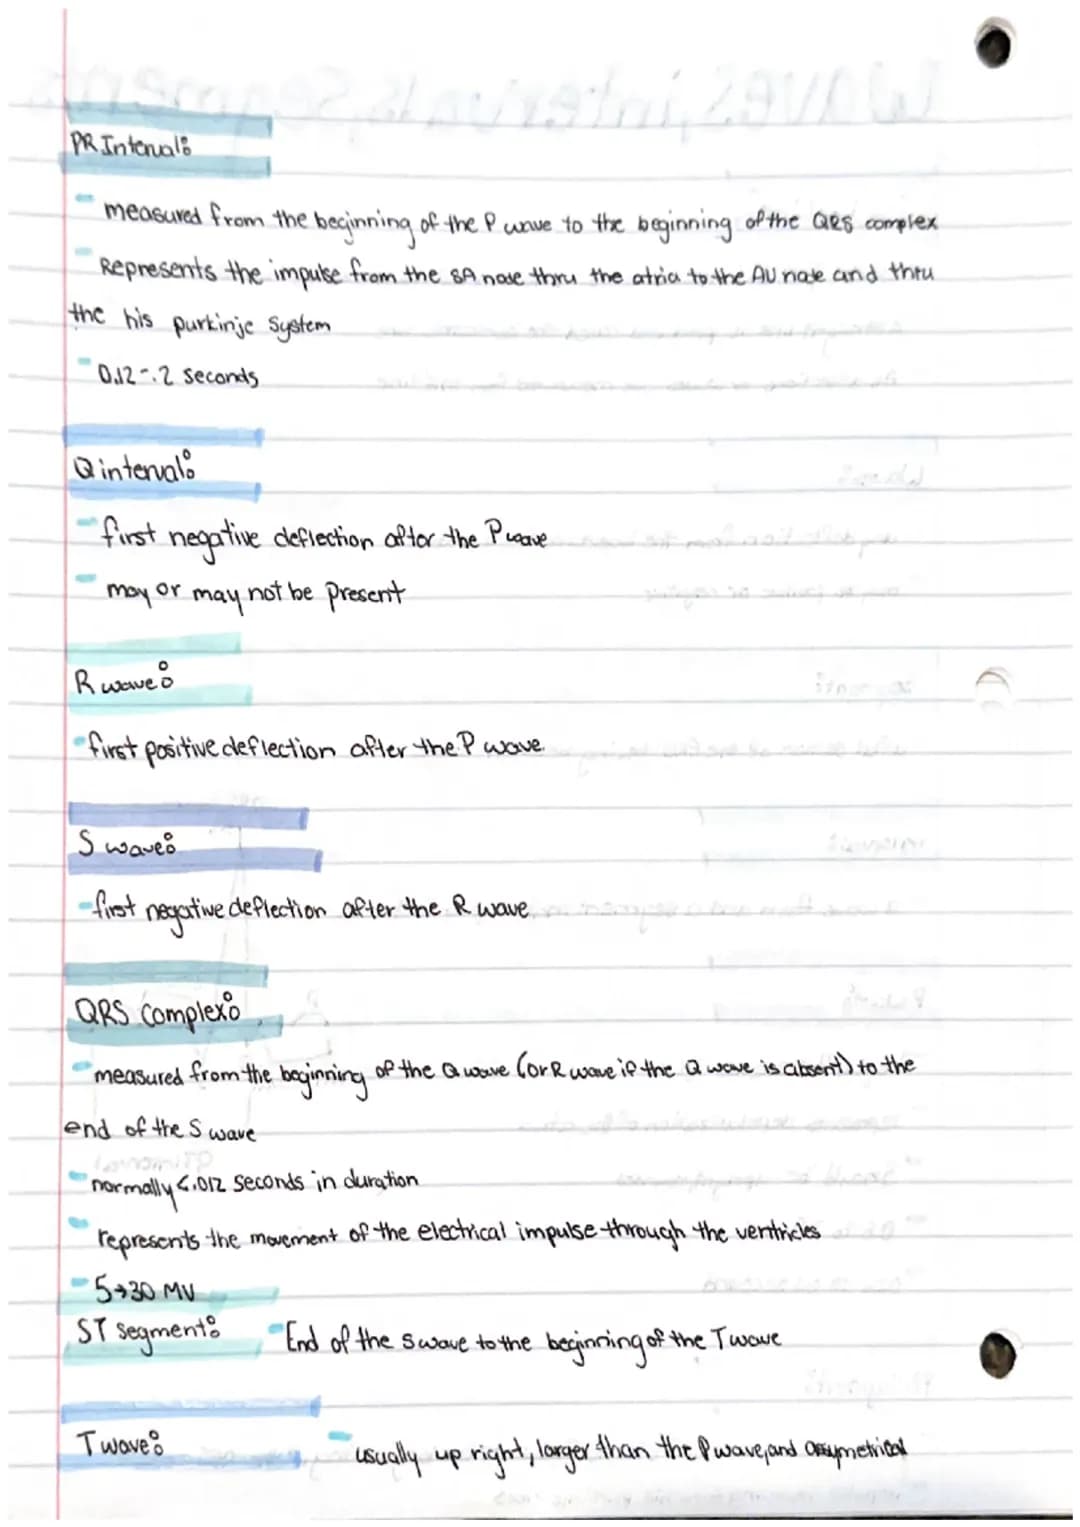 PR Interval:
- measured from the beginning of the P wave to the beginning of the QRS complex
- Represents the impulse from the SA node thru the atria to the AV node and thru
the his purkinje system
- 0.12-.2 seconds
Q interval:
- first negative deflection after the P wave
- may or may not be present
R wave:
- first positive deflection after the P wave.
S wave:
- first negative deflection after the R wave
QRS complex:
- measured from the beginning of the Q wave (or R wave if the Q wave is absent) to the
end of the S wave
- normally <.012 seconds in duration
- represents the movement of the electrical impulse through the ventricles
- 5→30 MV
ST segment: - End of the S wave to the beginning of the T wave
T wave: - usually up right, larger than the P wave, and assymetrical